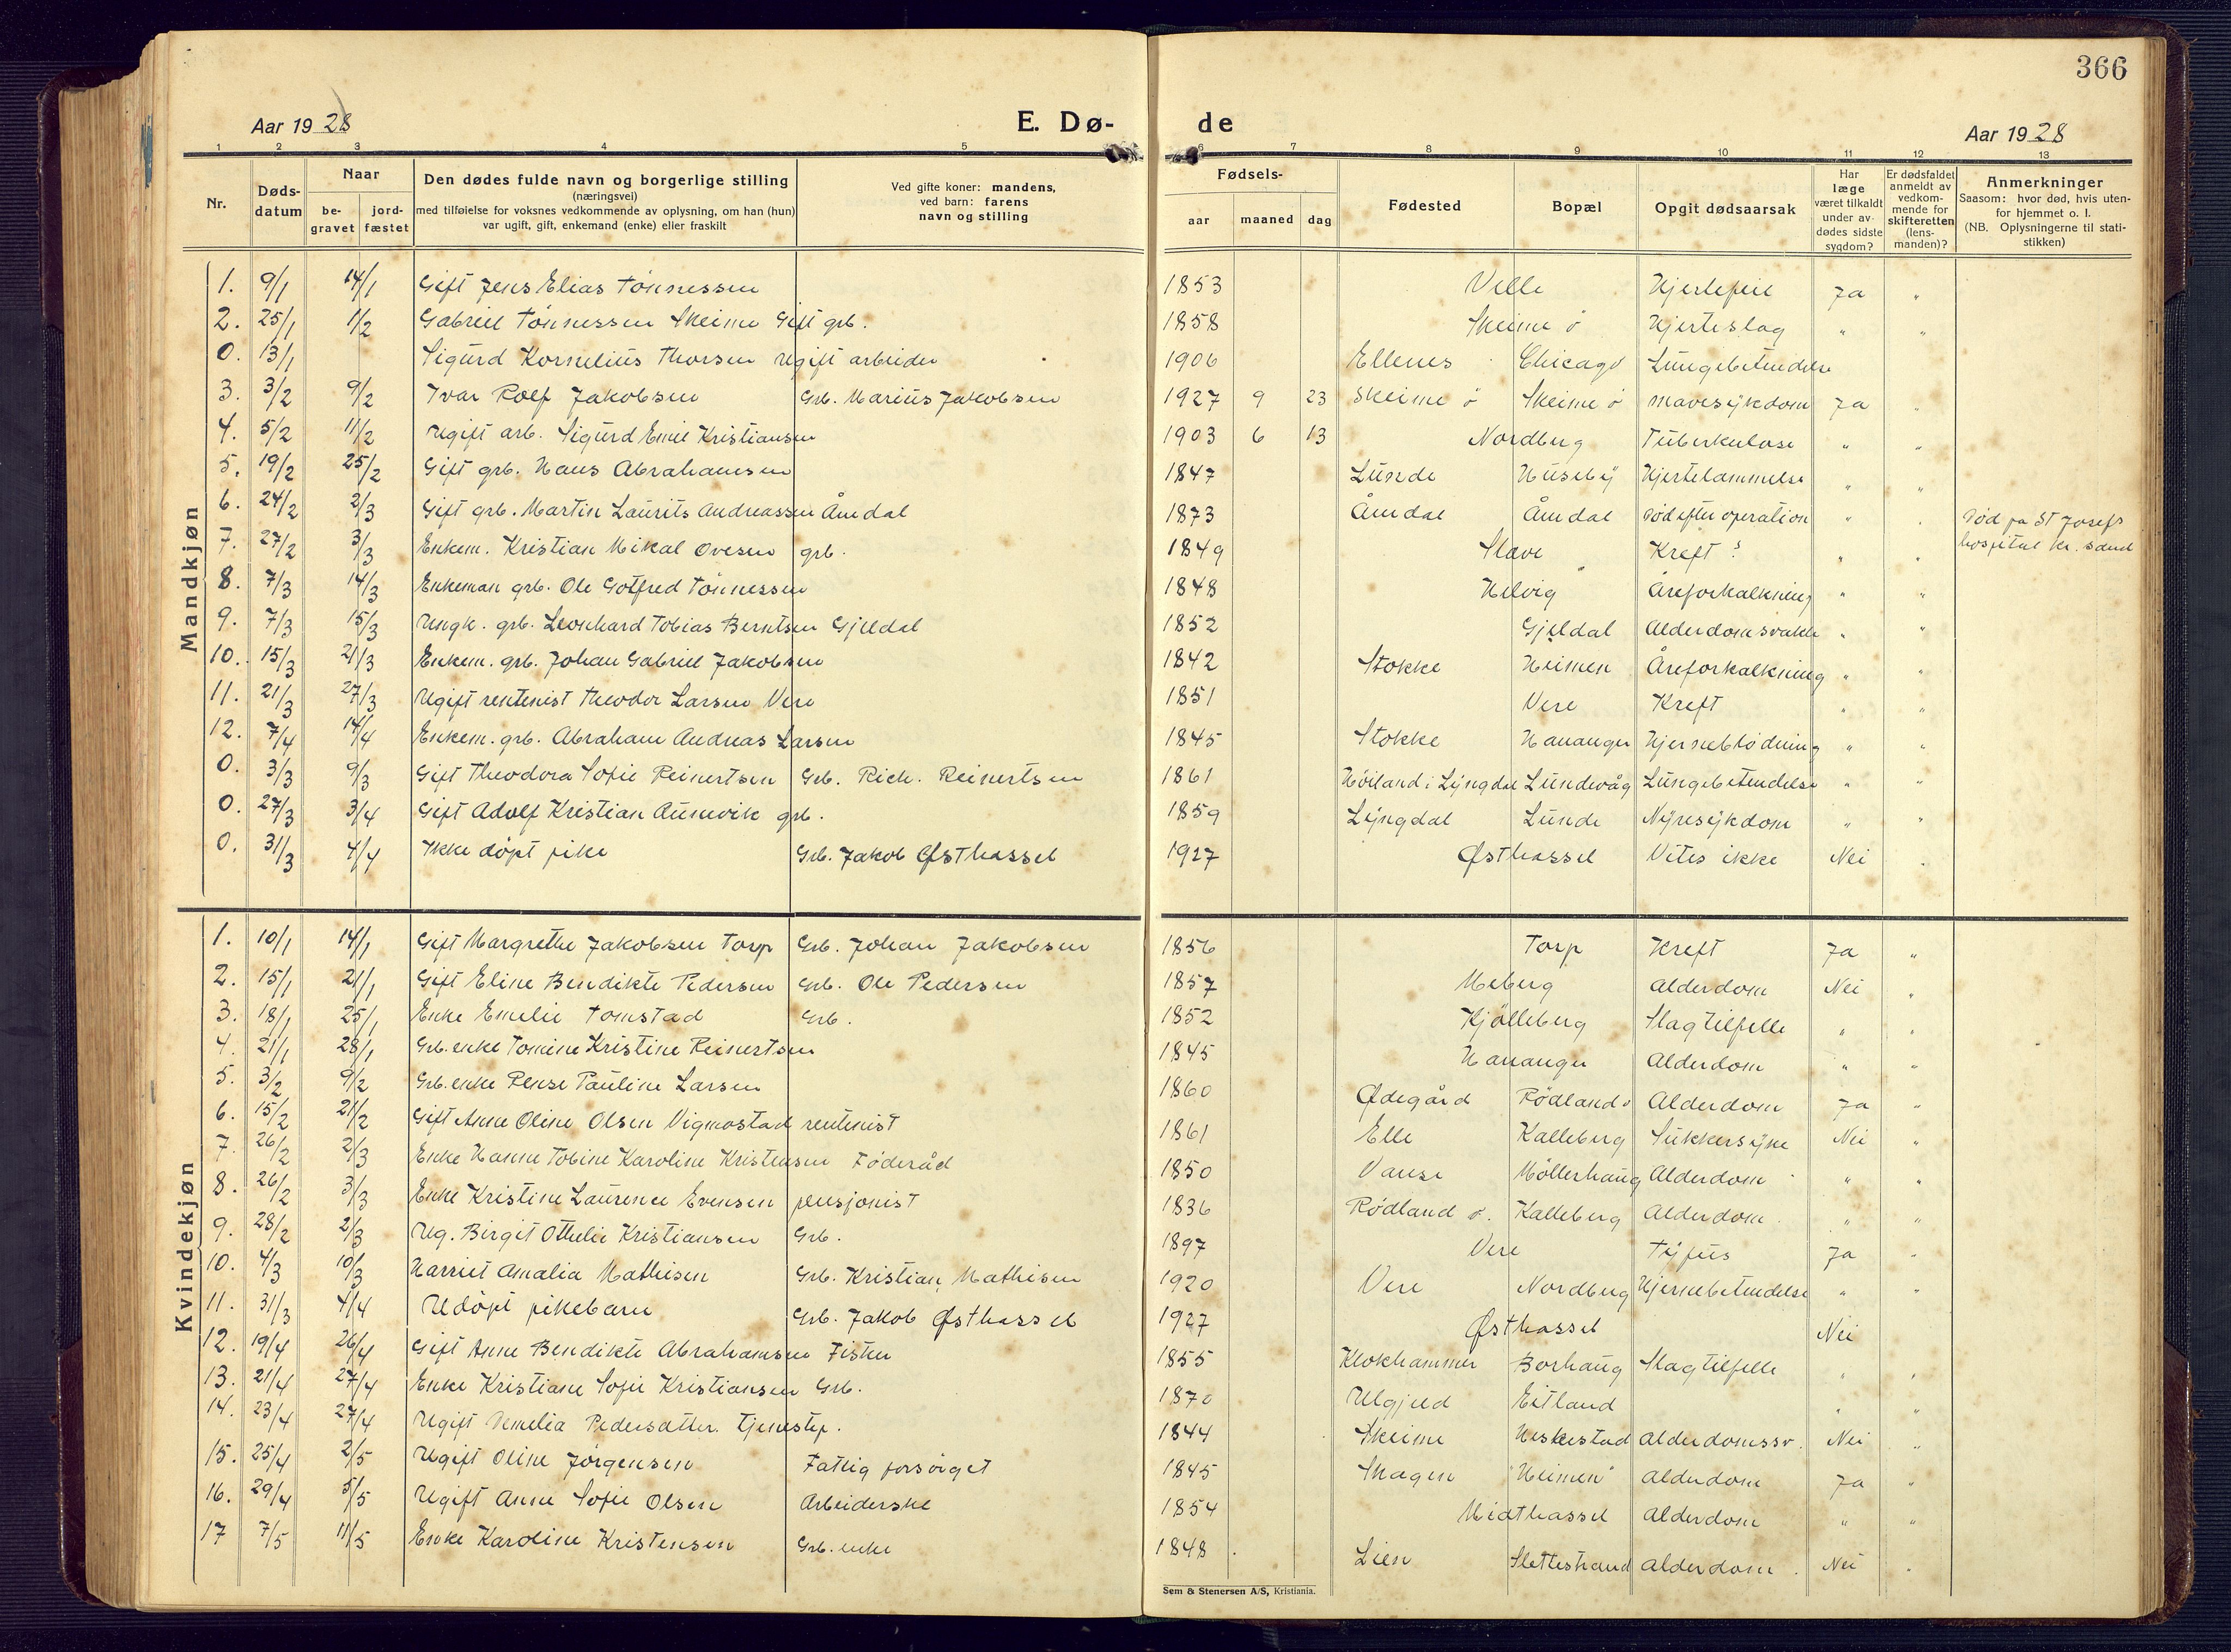 366
Aar 1928 E. Dø- de Aar 1928
1 2 3 4 5 6 7 8 9 10 11 12 13
Nr. Døds-datum Naar be-gravet jord-fæstet Den dødes fulde navn og borgerlige stilling (næringsvei) med tilføielse for voksnes vedkommende av oplysning, om han (hun) var ugift, gift, enkemand (enke) eller fraskilt Ved gifte koner: mandens, ved barn: farens navn og stilling Fødsels- aar maaned dag Fødested Bopæl Opgit dødsaarsak Har læge været tilkaldt under av-dødes sidste sygdom? Er dødsfaldet anmeldt av vedkom-mende for skifteretten (lens-manden)? Anmerkninger Saasom: hvor død, hvis uten-for hjemmet o. l. (NB. Oplysningerne til stati-stikken)
Mandkjøn
1. 9/1 14/1 Gift Jens Elias Tönnessen 1853 Velle Hjertefeil Ja "
2. 25/1 1/2 Gabriel Tönnessen Skeime Gift grb. 1858 Skeime ö Hjerteslag " "
0. 13/1 Sigurd Kornelius Thorsen Ugift arbeider 1906 Ellenes Chicago Lungebetendelse
3. 3/2 9/2 Ivar Rolf Jakobsen Grb. Marius Jakobsen 1927 9 23 Skeime ö Skeime ö mavesykdom Ja "
4. 5/2 11/2 Ugift arb. Sigurd Emil Kristiansen 1903 6 13 Nordberg Tuberkulose " "
5. 19/2 25/2 Gift grb. Hans Abrahamsen 1847 Lunde Huseby Hjertelammelse " "
6. 24/2 2/3 Gift grb. Martin Laurits Andreassen Åmdal 1873 Åmdal Åmdal död efter operation " . Död på St Josefs hospital kr. sand
7. 27/2 3/3 Enkem. Kristian Mikal Ovesen grb. 1849 Slave Kreft ? " "
8. 7/3 14/3 Enkeman grb. Ole Gotfred Tönnessen 1848 Helvig Åreforkalkning " "
9. 7/3 15/3 Ungk. grb. Leonhard Tobias Berntsen Gjeldal 1852 Gjeldal Alderdomsvakh " "
10. 15/3 21/3 Enkem. grb. Johan Gabriel Jakobsen 1842 Stokke Heimen Åreforkalkning " "
11. 21/3 27/3 Ugift rentenist Theodor Larsen Vere 1851 Vere Kreft " "
12. 7/4 14/4 Enkem. grb. Abraham Andreas Larsen 1845 Stokke Hananger Hjerneblödning " "
0. 3/3 9/3 Gift Theodora Sofie Reinertsen Grb. Rich. Reinertsen 1861 Höiland i Lyngdal Lundevåg Lungebetendelse " "
0. 27/3 3/4 Gift Adolf Kristian Aunevik grb. 1859 Lyngdal Lunde Nyresykdom " "
0. 31/3 4/4 Ikke döpt pike Grb. Jakob Østhassel 1927 Østhassel Vites ikke Nei .
Kvindekjøn
1. 10/1 14/1 Gift Margrethe Jakobsen Torp Grb. Johan Jakobsen 1856 Torp Kreft Ja "
2. 15/1 21/1 Gift Eline Bendikte Pedersen Grb. Ole Pedersen 1857 Meberg Alderdom Nei "
3. 18/1 25/1 Enke Emelie Tomstad Grb. 1852 Kjölleberg Slagtilfelle " "
4. 21/1 28/1 Grb. enke Tomine Kristine Reinertsen 1845 Hananger Alderdom " "
5. 3/2 9/2 Grb. enke Rense Pauline Larsen 1860 Ødegård Rödland ö Alderdom Ja "
6. 15/2 21/2 Gift Anne Oline Olsen Vigmostad rentenist 1861 Elle Kalleberg Sukkersyke Nei "
7. 26/2 2/3 Enke Hanne Tobine Karoline Kristensen Föderåd 1850 Vanse Möllerhaug Alderdom " "
8. 26/2 3/3 Enke Kristine Laurence Evensen pensjonist 1836 Rödland ö. Kalleberg Alderdom. " "
9. 28/2 2/3 Ug. Birgit Othelie Kristiansen Grb. 1897 Vere Tyfus Ja "
10. 4/3 10/3 Harriet Amalia Mathisen Grb. Kristian Mathisen 1920 Vere Nordberg Hjernebetendelse " "
11. 31/3 4/4 Udöpt pikebarn Grb. Jakob Østhassel 1927 Østhassel Nei
12. 19/4 26/4 Gift Anne Bendikte Abrahamsen Fisker 1855 Klokhammer Borhaug Slagtilfelle " "
13. 21/4 27/4 Enke Kristiane Sofie Kristiansen Grb. 1870 Ulgjeld Eitland " "
14. 23/4 27/4 Ugift Nemelia Pedersdatter. Tjenestep. 1844 Skeime Heskestad Alderdomssv. Nei "
15. 25/4 2/5 Ugift Oline Jörgensen Fattig forsörget 1845 Skagen "Heimen" Alderdom Ja "
16. 29/4 5/5 Ugift Anne Sofie Olsen Arbeiderske 1854 Midthassel Alderdom " "
17 7/5 11/5 Enke Karoline Kristensen Grb. enke 1848 Lien Slettestrand Alderdom. Nei .
Sem & Stenersen A/S, Kristiania.